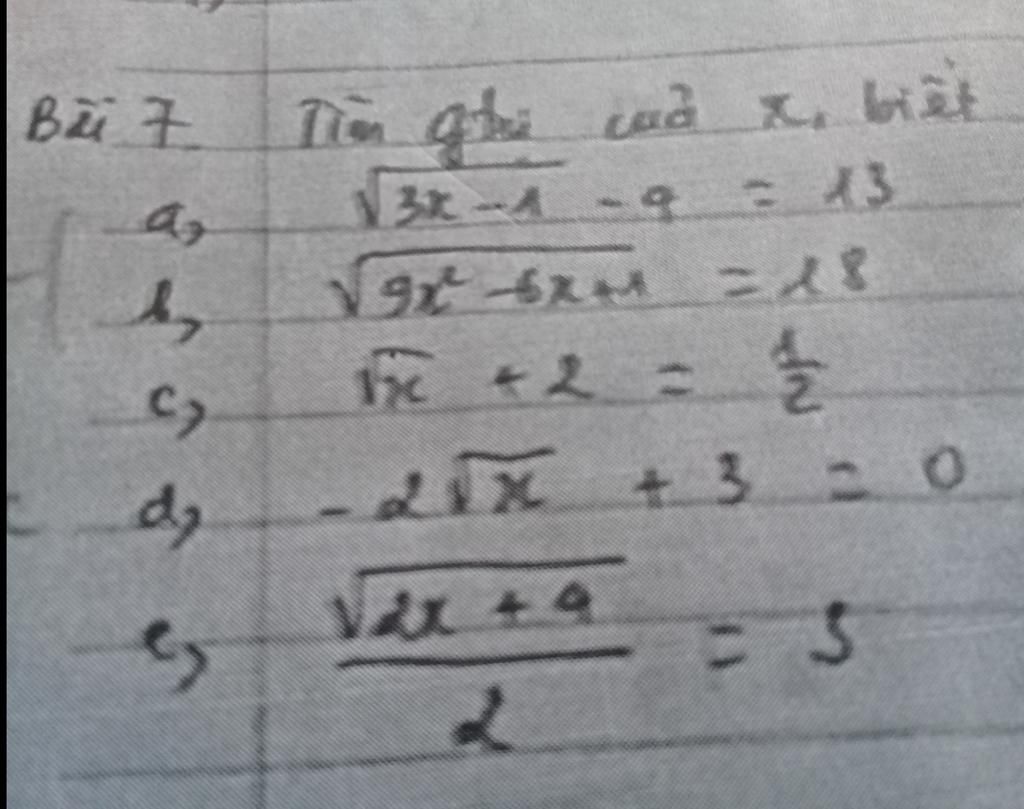 Bài 7 Tìm gtrị cuả x, biết
a, √(3x-1) - 9 = 13
b, √(9x² - 6x + 1) = 18
c, √x + 2 = 1/2
d, - 2√x + 3 = 0
e, √(2x + 9) / 2 = 5